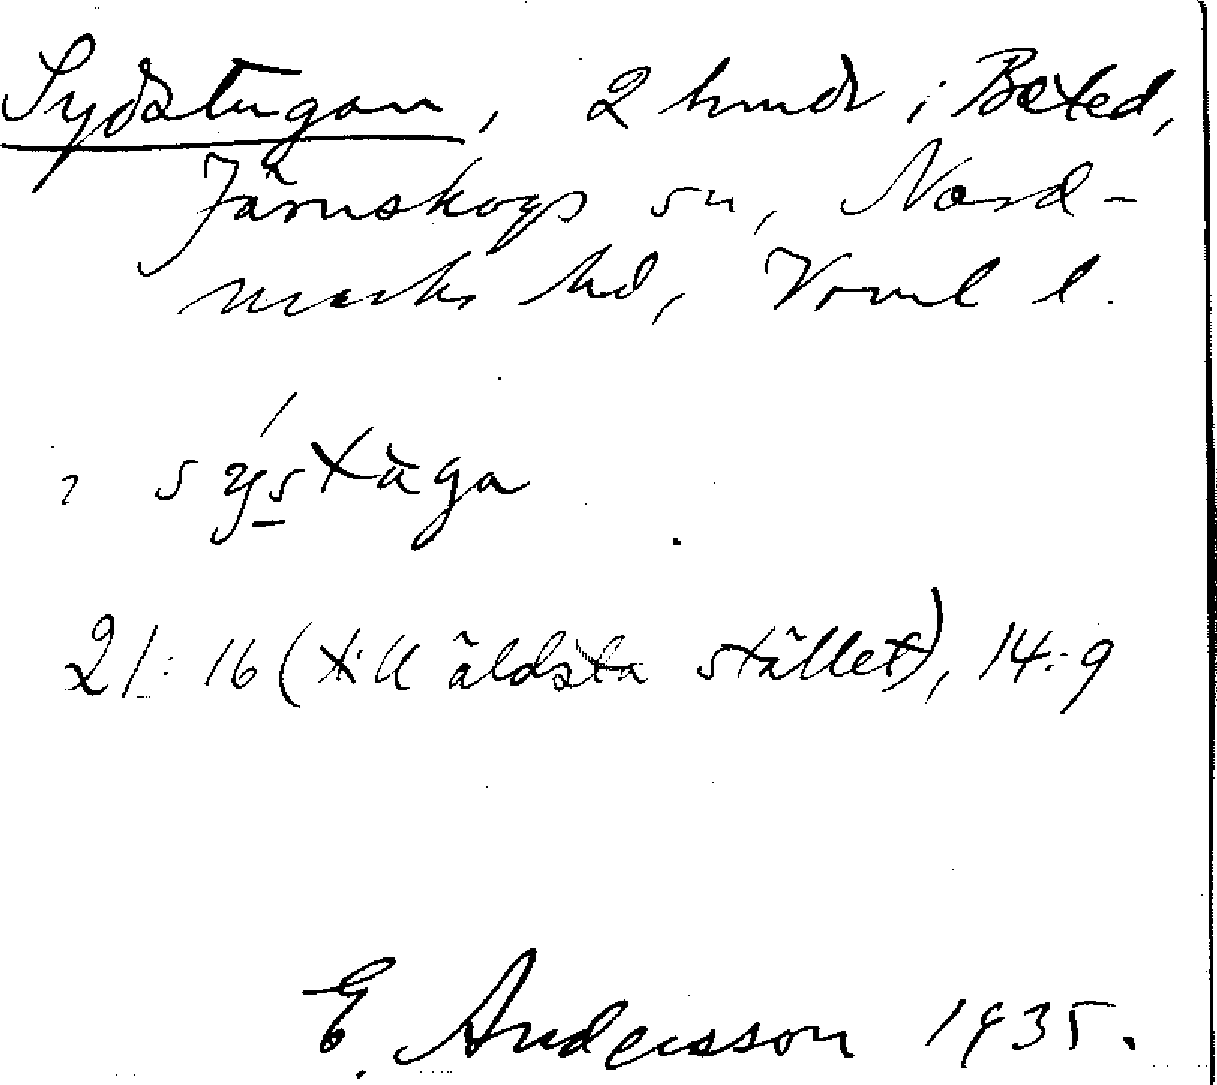 Sydstugan, 2 hmdr i Båsted,
Järnskogs sn, Nord-
marks hd, Värml l.
i sýstäga
21:16 (till äldsta stället), 14:9
E. Andersson 1935.